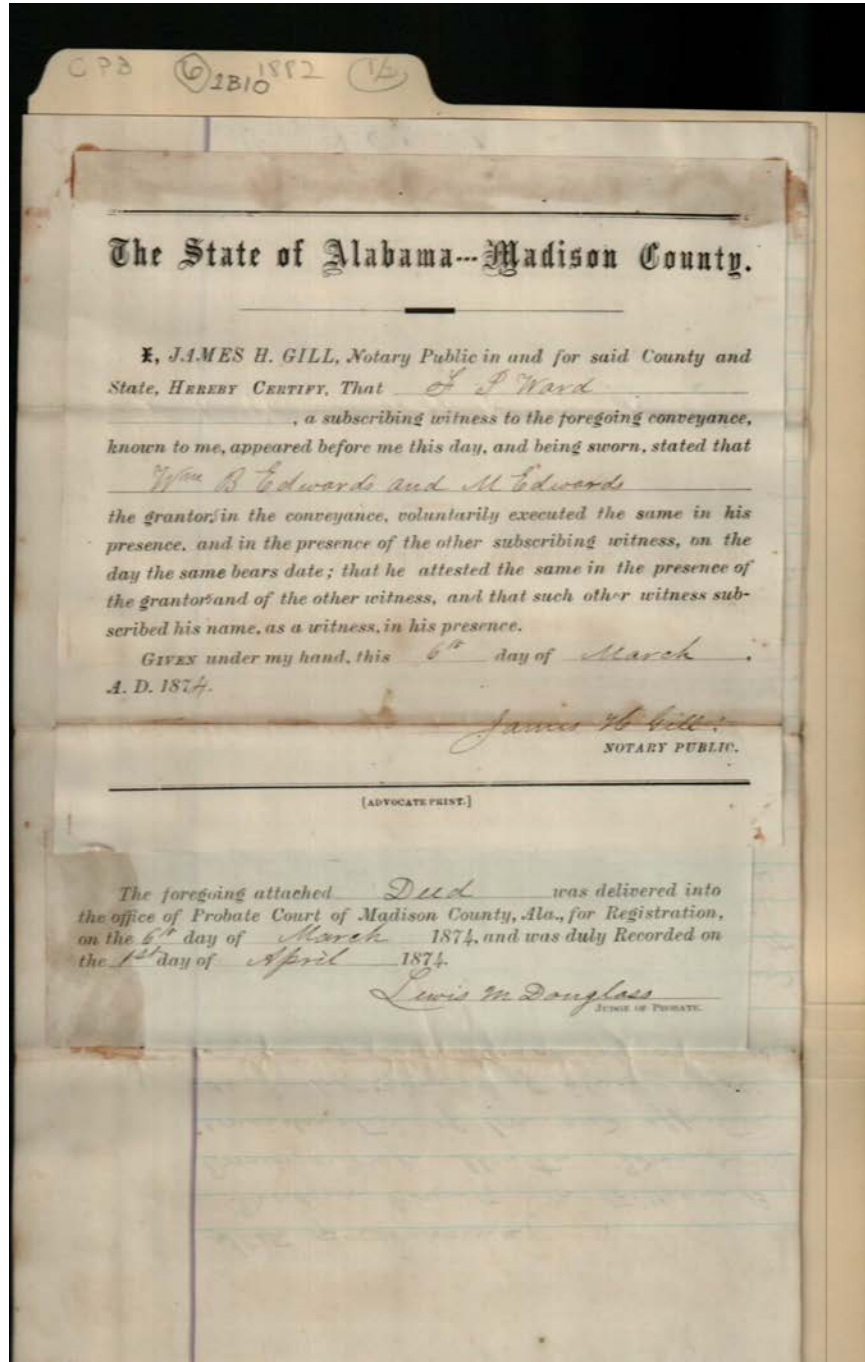 CPB 6 2B10 1882 1/2
The State of Alabama---Madison County.
I, JAMES H. GILL, Notary Public in and for said County and
State, HEREBY CERTIFY, That F P Ward
, a subscribing witness to the foregoing conveyance,
known to me, appeared before me this day, and being sworn, stated that
Wm B Edwards and M Edwards
the grantors in the conveyance, voluntarily executed the same in his
presence, and in the presence of the other subscribing witness, on the
day the same bears date; that he attested the same in the presence of
the grantors and of the other witness, and that such other witness sub-
scribed his name, as a witness, in his presence.
GIVEN under my hand, this 6th day of March .
A. D. 1874.
James H Gill.
NOTARY PUBLIC.
[ADVOCATE PRINT.]
The foregoing attached Deed was delivered into
the office of Probate Court of Madison County, Ala., for Registration,
on the 6th day of March 1874, and was duly Recorded on
the 1st day of April 1874.
Lewis M Douglass
JUDGE OF PROBATE.